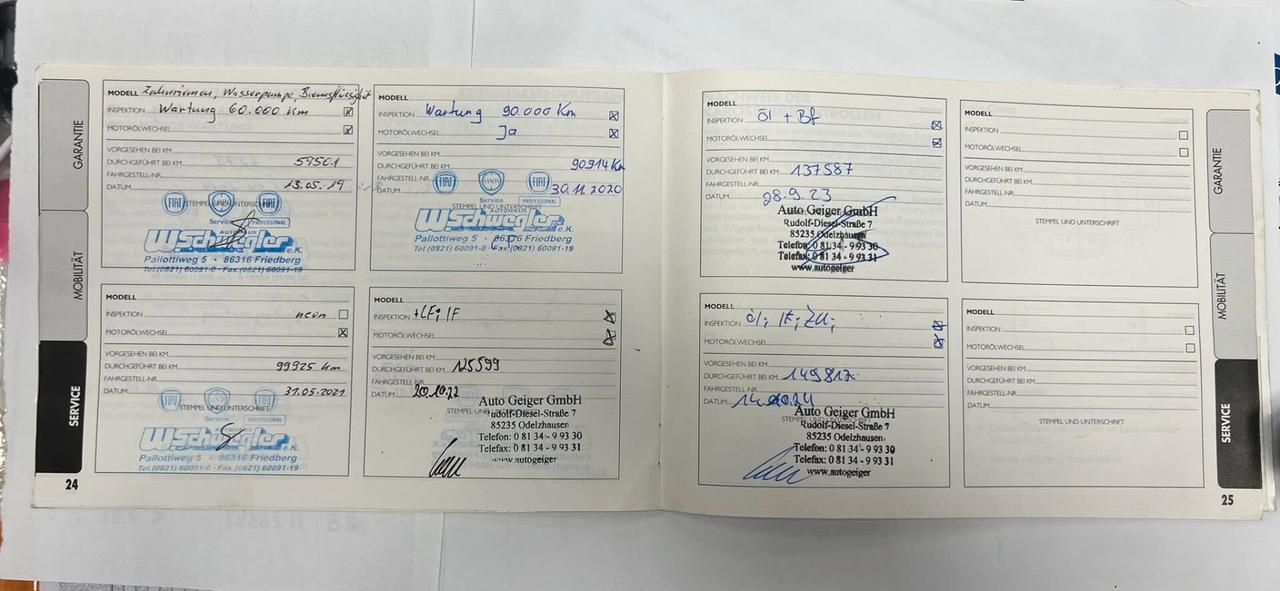 GARANTIE
MOBILITÄT
SERVICE
24
MODELL Zahnriemen, Wasserpumpe, Bremsflüssigkeit
INSPEKTION Wartung 60.000 Km
MOTORÖLWECHSEL
VORGESEHEN BEI KM
DURCHGEFÜHRT BEI KM 59501
FAHRGESTELL-NR.
DATUM 13.05.19
STEMPEL UND UNTERSCHRIFT
FIAT LANCIA FIAT
Service PROFESSIONAL
AUTOHAUS
W.Schwegler e.K.
Pallottiweg 5 • 86316 Friedberg
Tel.(0821) 60091-0 · Fax.(0821) 60091-19
MODELL
INSPEKTION Wartung 90.000 Km
MOTORÖLWECHSEL Ja
VORGESEHEN BEI KM
DURCHGEFÜHRT BEI KM 90914 Km
FAHRGESTELL-NR.
DATUM 30.11.2020
FIAT LANCIA FIAT
Service PROFESSIONAL
STEMPEL UND UNTERSCHRIFT
AUTOHAUS
W.Schwegler e.K.
Pallottiweg 5 • 86316 Friedberg
Tel.(0821) 60091-0 · Fax.(0821) 60091-19
MODELL
INSPEKTION nein
MOTORÖLWECHSEL
VORGESEHEN BEI KM
DURCHGEFÜHRT BEI KM 99925 km
FAHRGESTELL-NR.
DATUM 31.05.2021
FIAT FIAT
Service PROFESSIONAL
STEMPEL UND UNTERSCHRIFT
W.Schwegler e.K.
Pallottiweg 5 • 86316 Friedberg
Tel.(0821) 60091-0 · Fax.(0821) 60091-19
MODELL
INSPEKTION +LF; IF
MOTORÖLWECHSEL
VORGESEHEN BEI KM
DURCHGEFÜHRT BEI KM 125599
FAHRGESTELL-NR.
DATUM 20.10.22
Auto Geiger GmbH
udolf-Diesel-Straße 7
85235 Odelzhausen
Telefon: 0 81 34 - 9 93 30
Telefax: 0 81 34 - 9 93 31
www.autogeiger
MODELL
INSPEKTION Öl + Bf
MOTORÖLWECHSEL
VORGESEHEN BEI KM
DURCHGEFÜHRT BEI KM 137587
FAHRGESTELL-NR.
DATUM 28.9.23
Auto Geiger GmbH
Rudolf-Diesel-Straße 7
85235 Odelzhausen
Telefon: 0 81 34 - 9 93 30
Telefax: 0 81 34 - 9 93 31
www.autogeiger
MODELL
INSPEKTION
MOTORÖLWECHSEL
VORGESEHEN BEI KM
DURCHGEFÜHRT BEI KM
FAHRGESTELL-NR.
DATUM
STEMPEL UND UNTERSCHRIFT
MODELL
INSPEKTION Öl; IF; ZÜ;
MOTORÖLWECHSEL
VORGESEHEN BEI KM
DURCHGEFÜHRT BEI KM 149817
FAHRGESTELL-NR.
DATUM
Auto Geiger GmbH
Rudolf-Diesel-Straße 7
85235 Odelzhausen
Telefon: 0 81 34 - 9 93 30
Telefax: 0 81 34 - 9 93 31
www.autogeiger
MODELL
INSPEKTION
MOTORÖLWECHSEL
VORGESEHEN BEI KM
DURCHGEFÜHRT BEI KM
FAHRGESTELL-NR.
DATUM
STEMPEL UND UNTERSCHRIFT
GARANTIE
MOBILITÄT
SERVICE
25